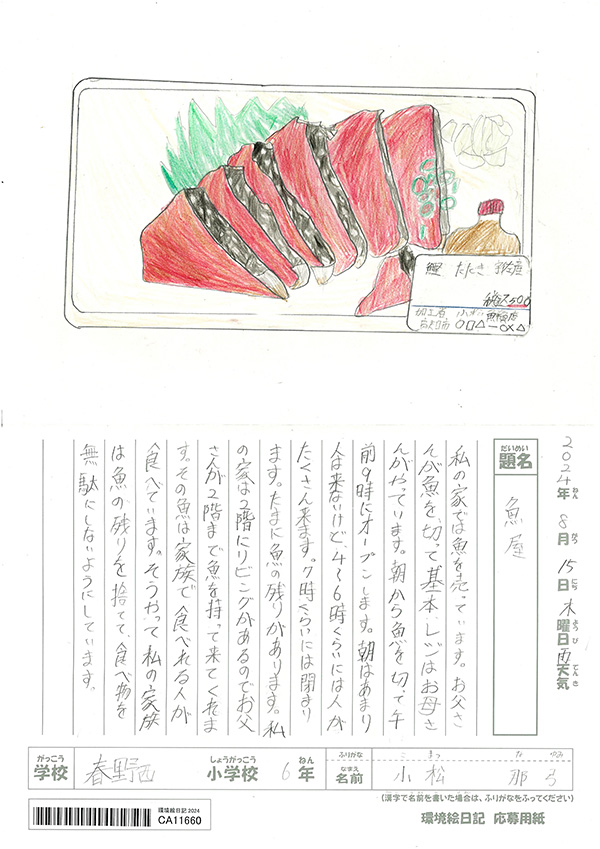 鰹 たたき
500
加工者 小松鮮魚店
2024年 8月 15日 木曜日 雨 天気
ねん がつ にち ようび てんき
だいめい
題名
魚屋
私の家では魚を売っています。お父さ
んが魚を切って基本レジはお母さ
んがやっています。朝から魚を切って午
前9時にオープンします。朝はあまり
人は来ないけど、4~6時くらいには人が
たくさん来ます。7時くらいには閉まり
ます。たまに魚の残りがあります。私
の家は2階にリビングがあるのでお父
さんが2階まで魚を持って来てくれま
す。その魚は家族で食べれる人が
食べています。そうやって私の家族
は魚の残りを捨てて、食べ物を
無駄にしないようにしています。
がっこう しょうがっこう ねん ふりがな こまつ なゆみ
学校 春野西 小学校 6年 なまえ 名前 小松 那弓
(漢字で名前を書いた場合は、ふりがなをふってください)
環境絵日記 2024
CA11660
環境絵日記 応募用紙